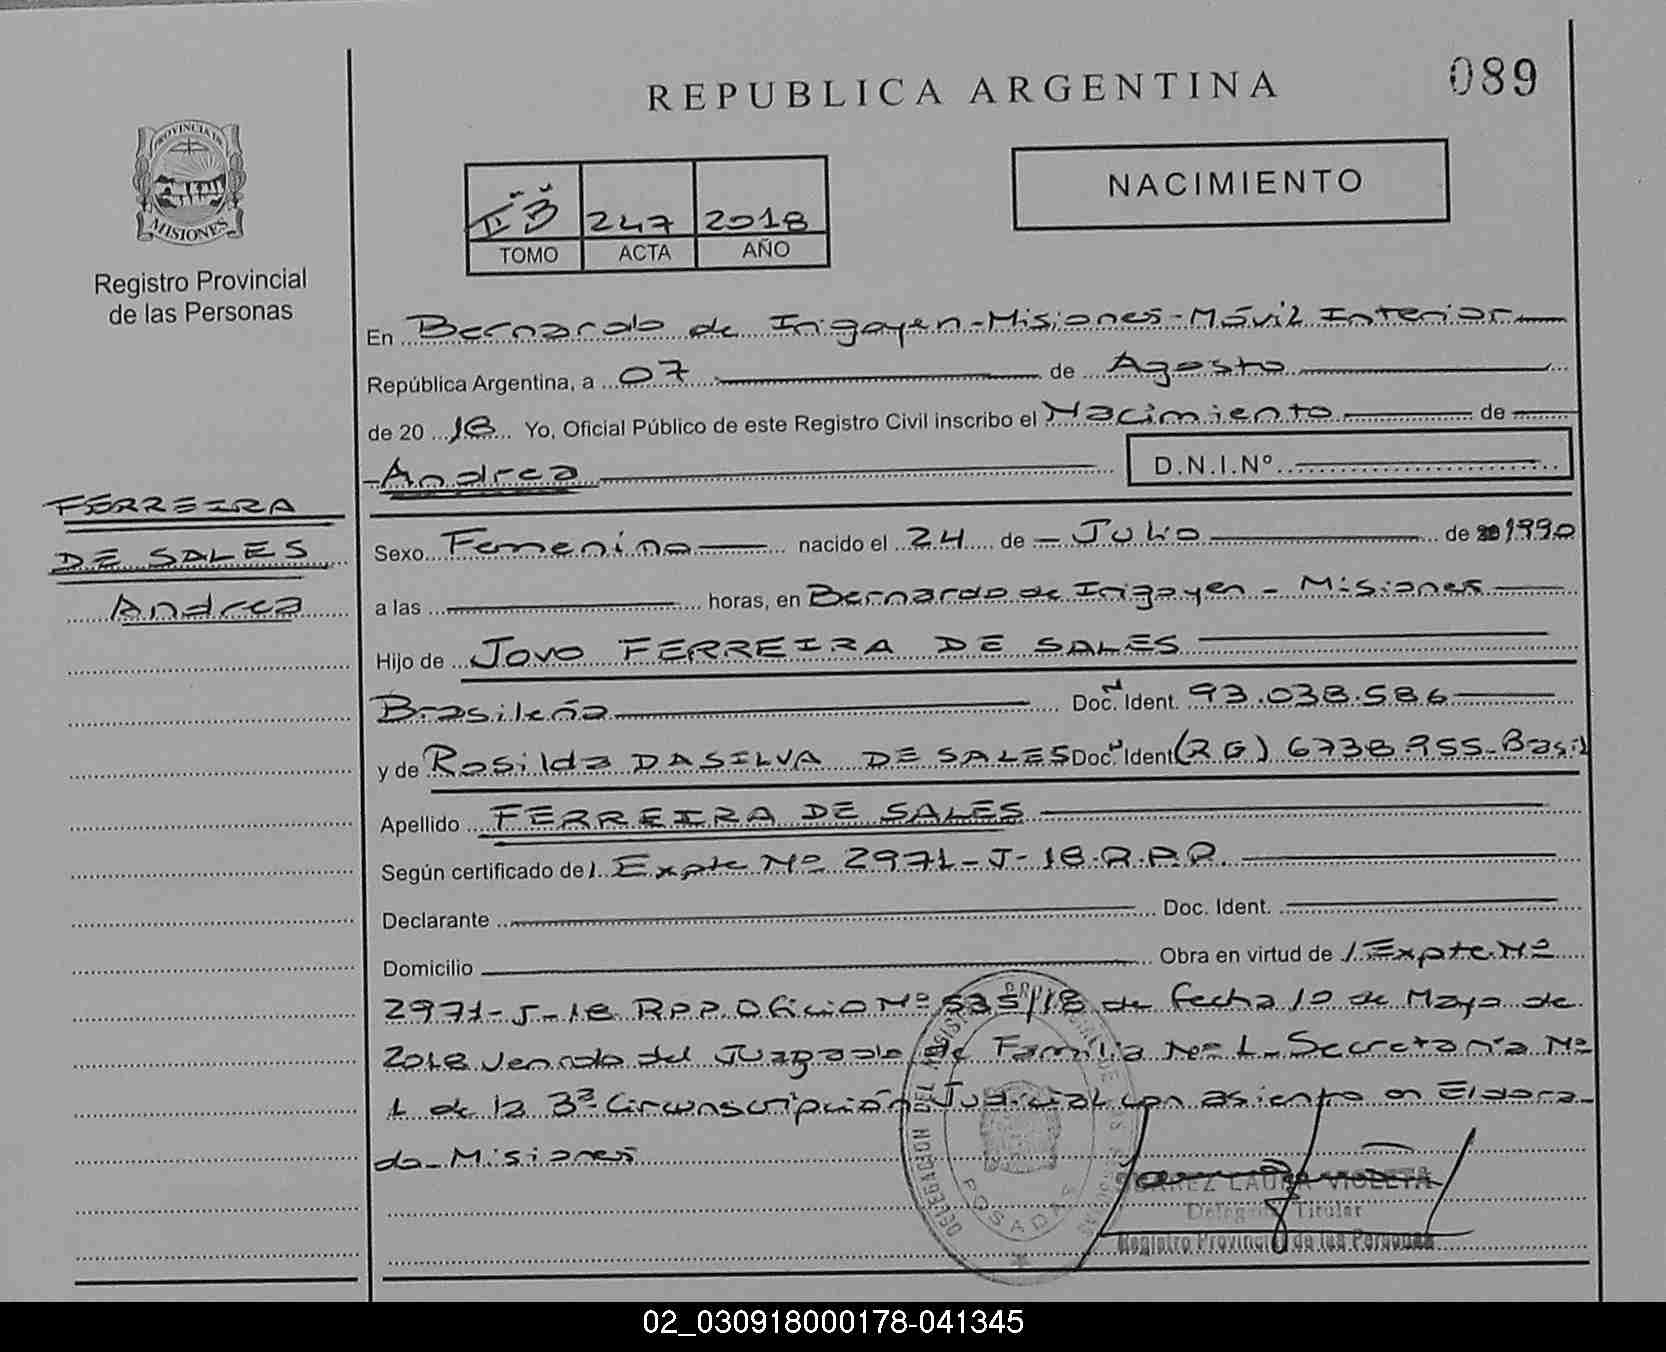 REPUBLICA ARGENTINA
089
PROVINCIA DE
MISIONES
Registro Provincial
de las Personas
II B 247 2018
TOMO ACTA AÑO
NACIMIENTO
En Bernardo de Irigoyen-Misiones-Móvil Interior
República Argentina, a 07 de Agosto
de 20 18 Yo, Oficial Público de este Registro Civil inscribo el Nacimiento de
Andrea D.N.I.Nº
FERREIRA
DE SALES
Andrea
Sexo Femenino nacido el 24 de Julio de 1990
a las horas, en Bernardo de Irigoyen - Misiones
Hijo de Jovo FERREIRA DE SALES
Brasileña Doc. Ident. 93.038.586
y de Rosilda DA SILVA DE SALES Doc. Ident (RG) 6738.955-Basil
Apellido FERREIRA DE SALES
Según certificado de Expte Nº 2971-J-18.R.P.P.
Declarante Doc. Ident.
Domicilio Obra en virtud de Expte.Nº
2971-J-18 R.P.P. Oficio Nº 535/18 de fecha 10 de Mayo de
2018 venido del Juzgado de Familia Nº 1- Secretaría Nº
1 de la 3ª Circunscripción Judicial con asiento en Eldora-
do-Misiones
POSADAS
SUAREZ LAURA VIOLETA
Delegada Titular
Registro Provincial de las Personas
02_030918000178-041345